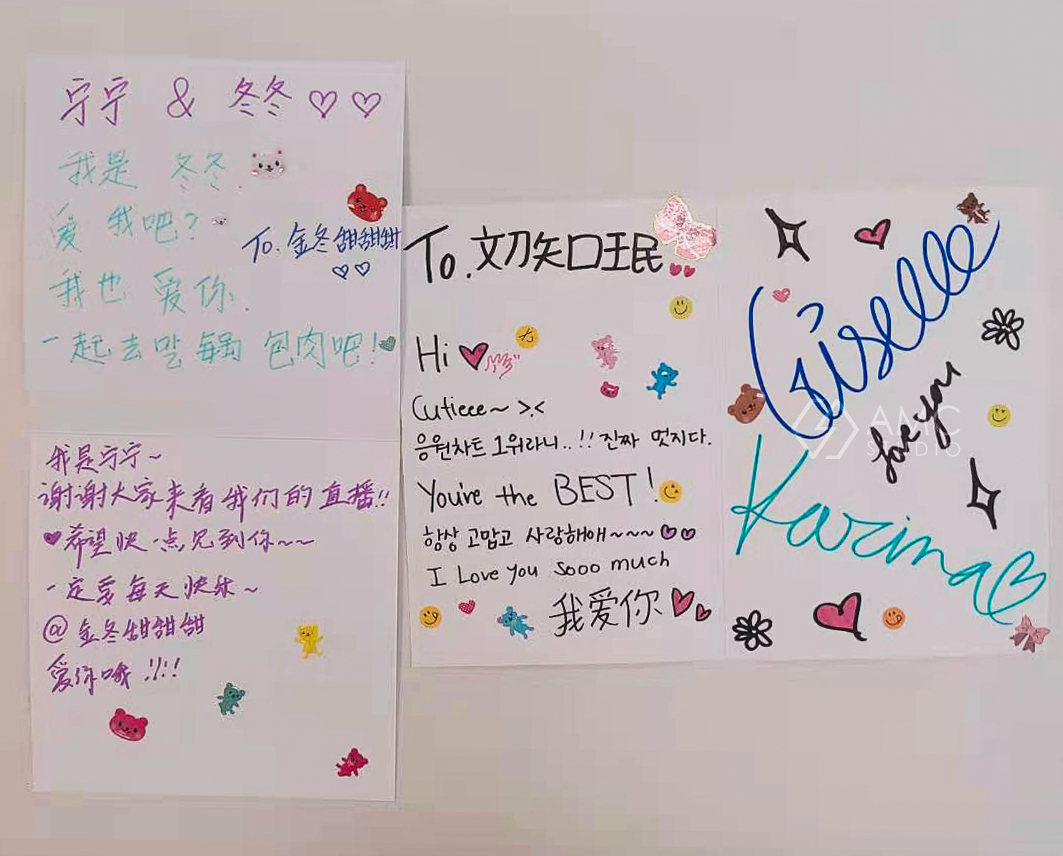 宁宁 & 冬冬 ♡ ♡
我是 冬冬.
爱 我吧?
To. 金冬甜甜甜
♡♡
我也 爱你.
一起去吃 每 包肉吧!
我是宁宁~
谢谢大家来看我们的直播!!
♥希望快一点见到你~~
一定要每天快乐~
@金冬甜甜甜
爱你哦 !!!!
To. 文刀矢口王民
Hi ♥
Cutieee~ >.<
응원차트 1위라니..!! 진짜 멋지다.
You're the BEST!
항상 고맙고 사랑해애~~~♥♥
I Love you Sooo much
我爱你
Giselle
love you
Karina
AMC
STUDIO